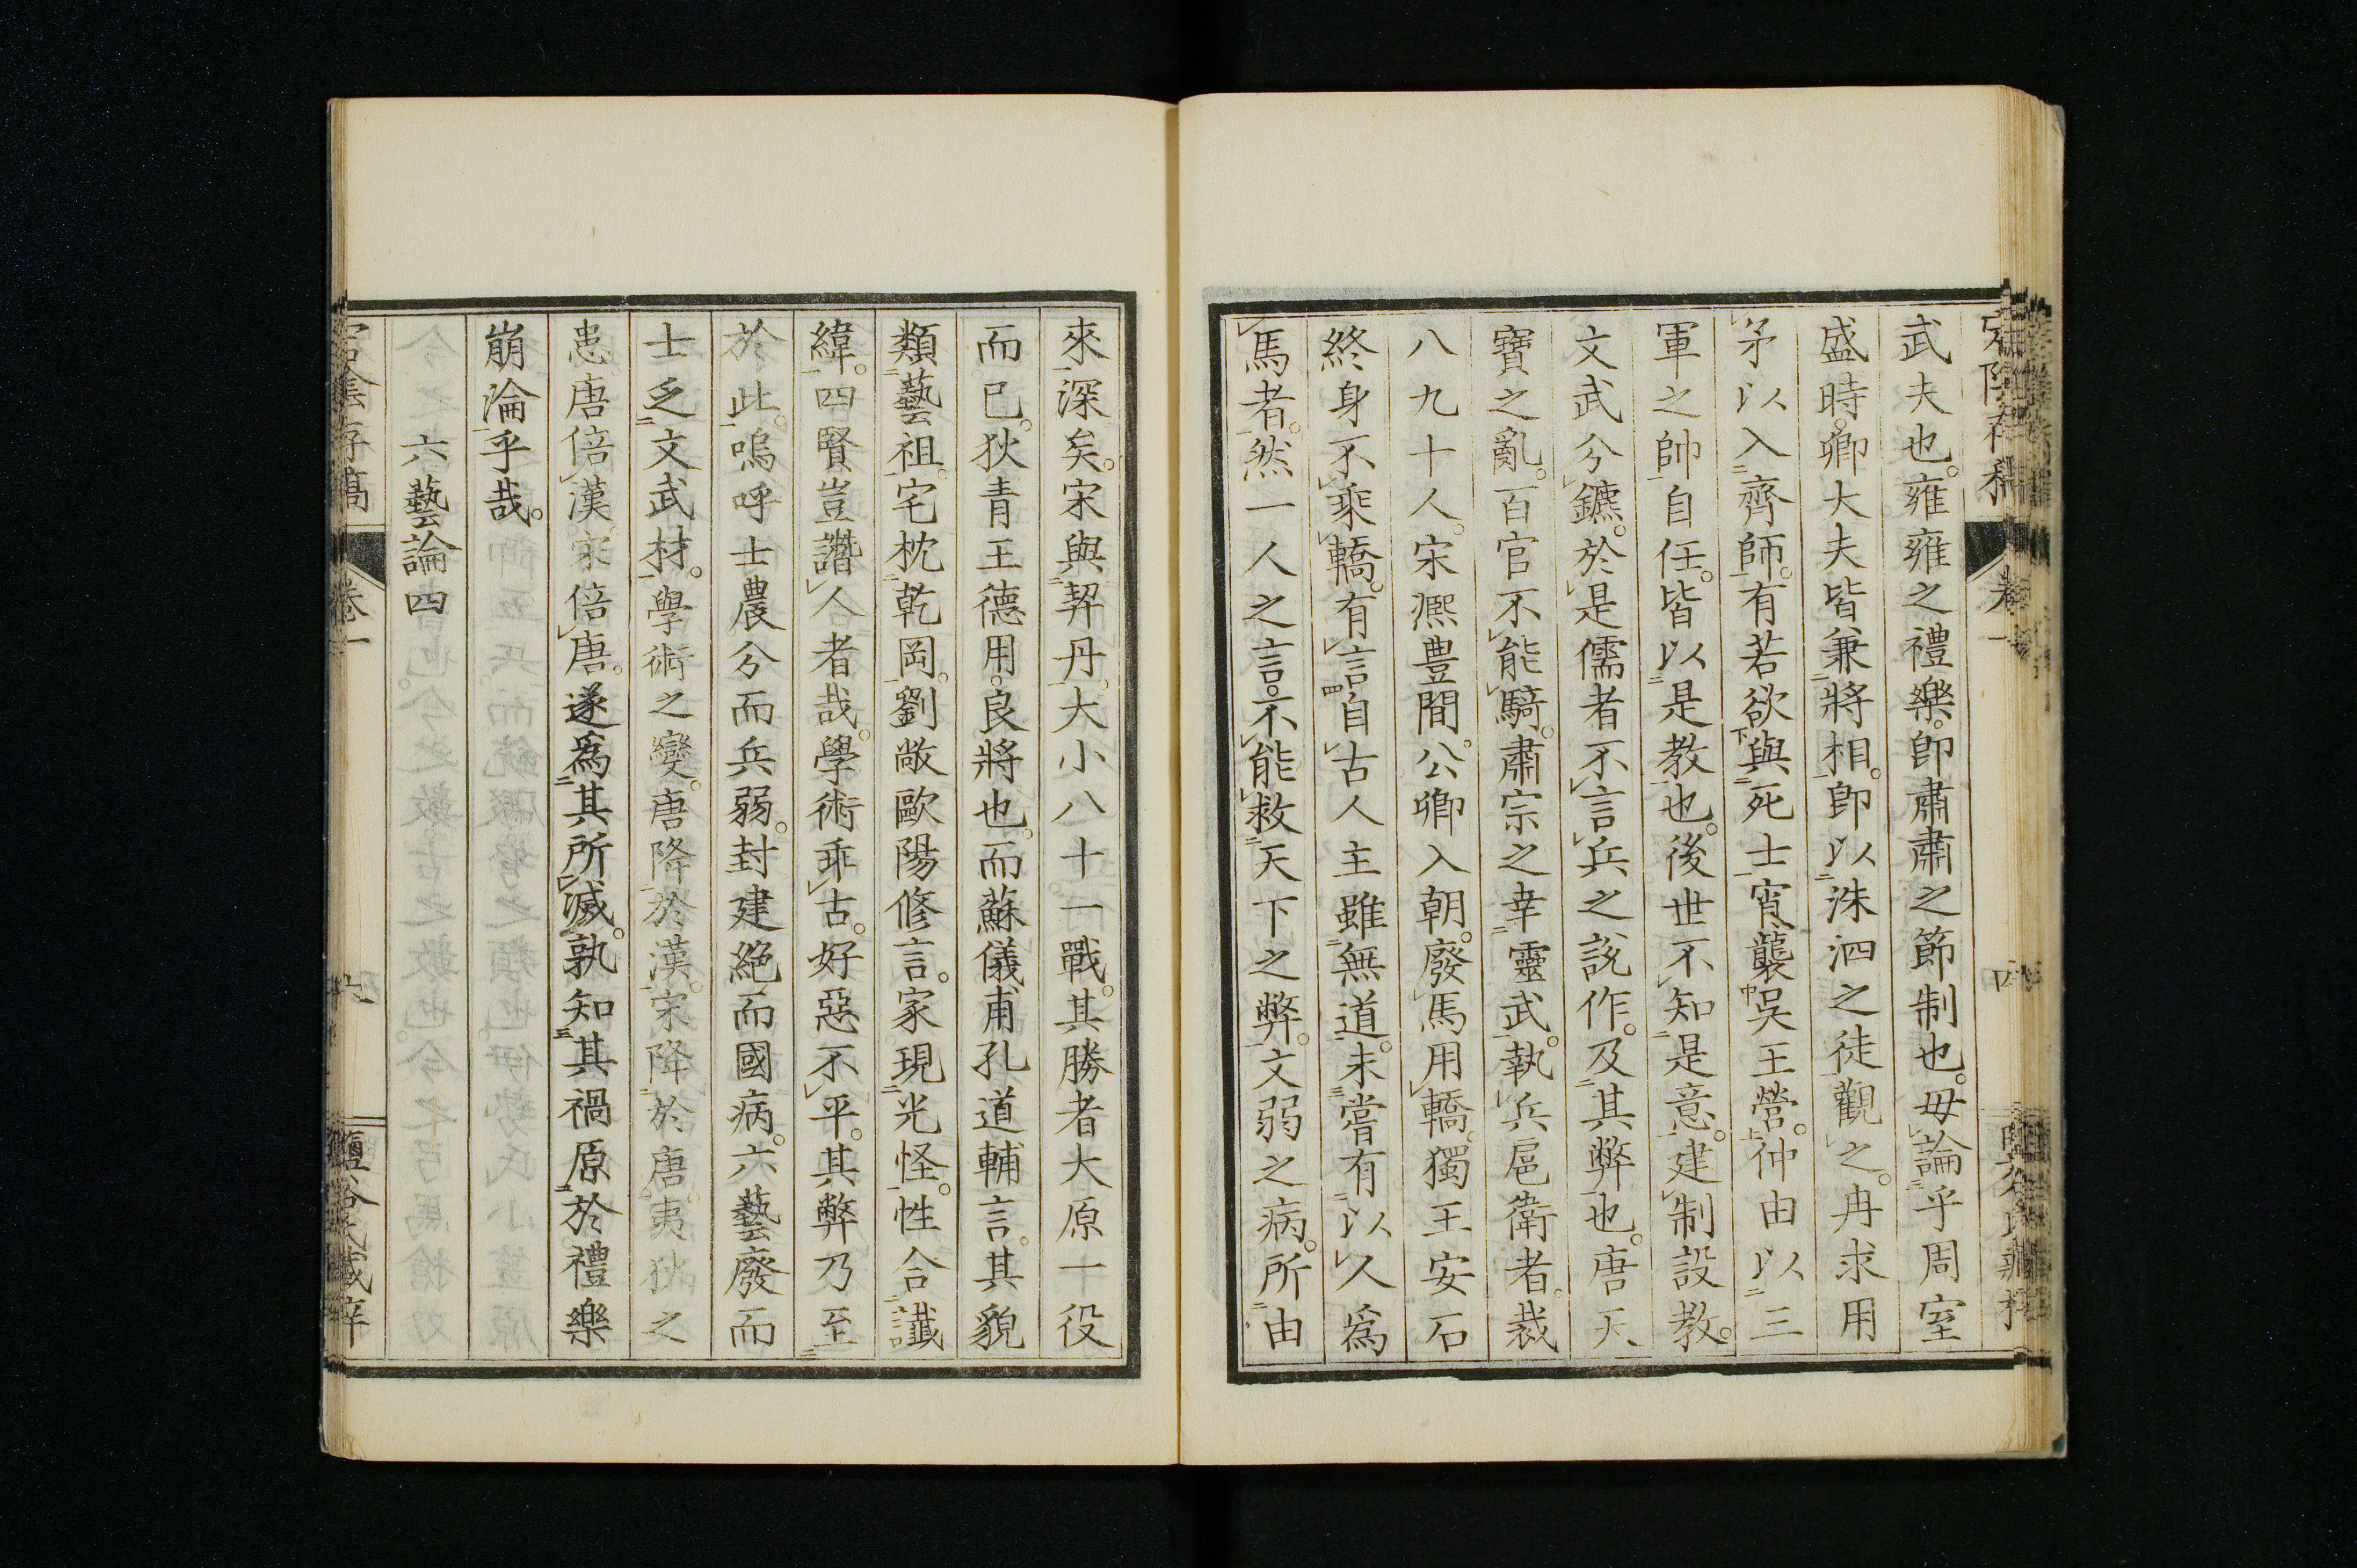 武夫也。雍雍之禮樂。卽肅肅之節制也。毋論乎周室
盛時。卿大夫皆兼將相。卽以洙泗之徒觀之。冉求用
矛以入齊師。有若欲與死士宵襲吳王營。仲由以三
軍之帥自任。皆以是教也。後世不知是意。建制設教。
文武分鑣。於是儒者不言兵之說作。及其弊也。唐天
寶之亂。百官不能騎。肅宗之幸靈武。執兵扈衛者。裁
八九十人。宋熈豊間。公卿入朝。廢馬用轎。獨王安石
終身不乘轎。有言自古人主雖無道。未嘗有以人爲
馬者。然一人之言。不能救天下之弊。文弱之病。所由
來深矣。宋與契丹。大小八十一戰。其勝者大原一役
而已。狄青王德用。良將也。而蘇儀甫孔道輔言。其貌
類藝祖。宅枕乾岡。劉敞歐陽修言。家現光怪。性合讖
緯。四賢豈譖人者哉。學術乖古。好惡不平。其弊乃至
於此。嗚呼士農分而兵弱。封建絕而國病。六藝廢而
士乏文武材。學術之變。唐降於漢。宋降於唐。夷狄之
患。唐倍漢。宋倍唐。遂爲其所滅。孰知其禍原於禮樂
崩淪乎哉。
六藝論四
宕陰存稿 卷一